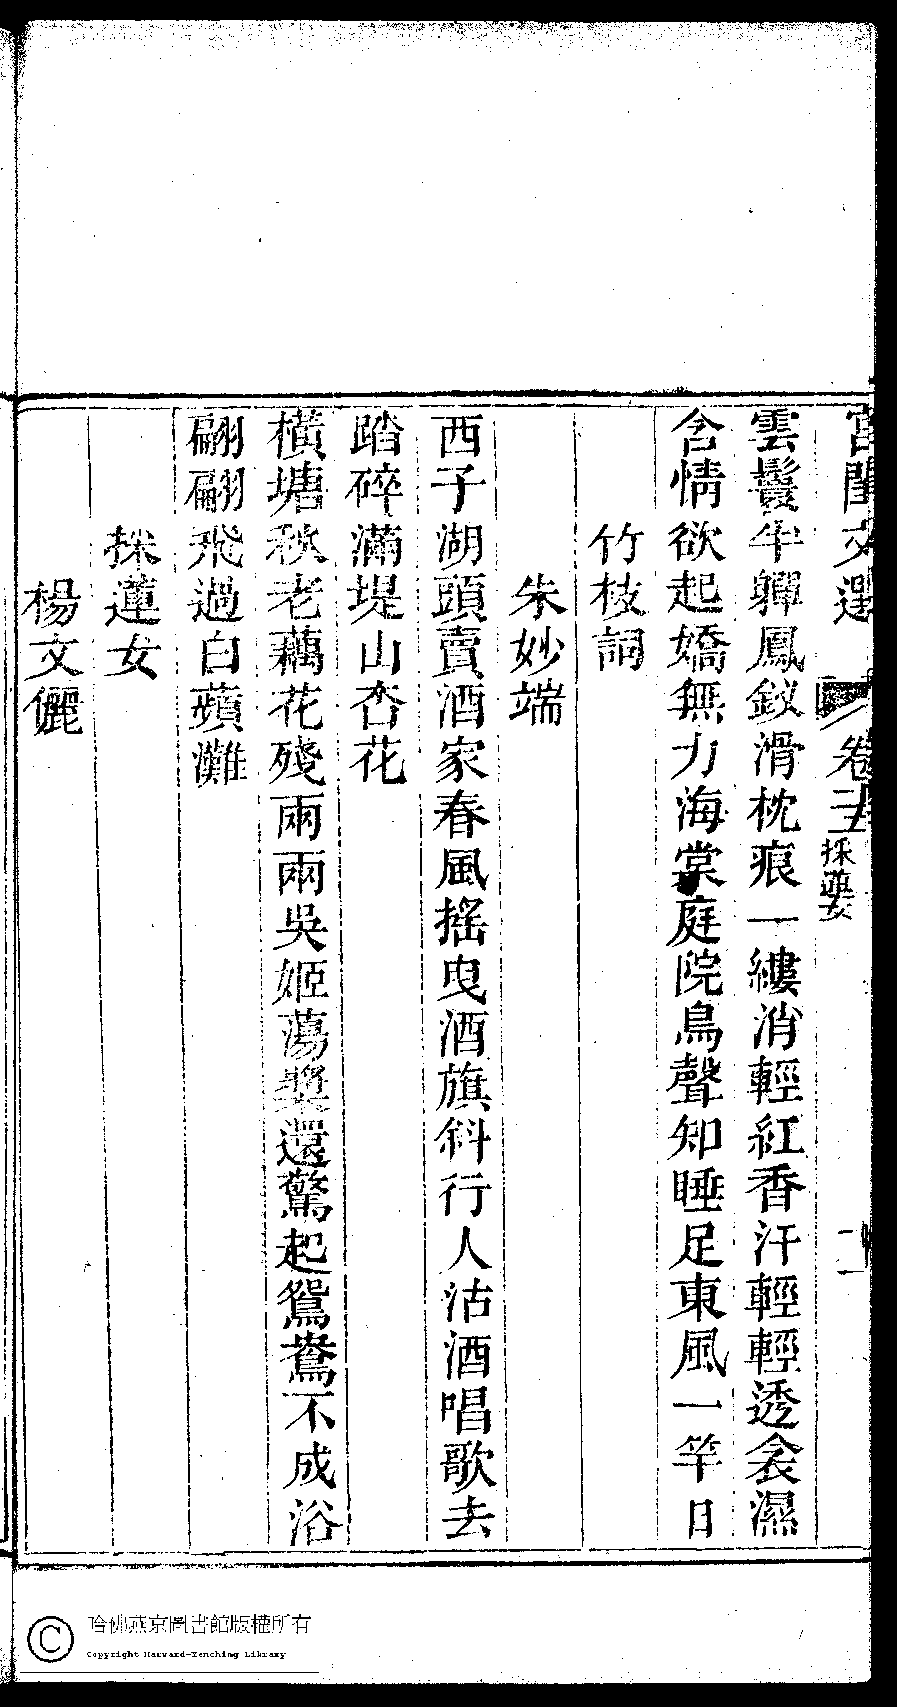 宮閨文選 卷二十 採蓮女
雲鬟半軃鳳釵滑枕痕一縷消輕紅香汗輕輕透衾濕
含情欲起嬌無力海棠庭院鳥聲知睡足東風一竿日
竹枝詞
朱妙端
西子湖頭賣酒家春風搖曳酒旗斜行人沽酒唱歌去
踏碎滿堤山杏花
橫塘秋老藕花殘兩兩吳姬蕩槳還驚起鴛鴦不成浴
翩翩飛過白蘋灘
採蓮女
楊文儷
哈佛燕京圖書館版權所有
Copyright Harvard-Yenching Library